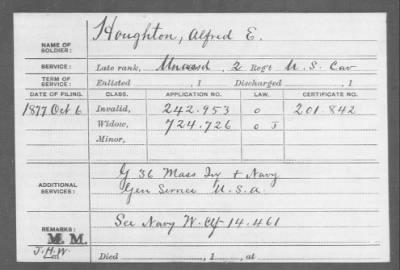 NAME OF SOLDIER: Houghton, Alfred E.
SERVICE: Late rank, Unassd, 2 Reg't U.S. Cav
TERM OF SERVICE: Enlisted , 1 Discharged , 1
DATE OF FILING. CLASS. APPLICATION NO. LAW. CERTIFICATE NO.
1877 Oct 6 Invalid, 242.953 o 201.842
Widow, 724.726 o J
Minor,
ADDITIONAL SERVICES: G 36 Mass Inf + Navy
Gen Service U.S.A.
REMARKS: See Navy W. Ctf 14.461
M. M.
J.H.W. Died , 1 , at